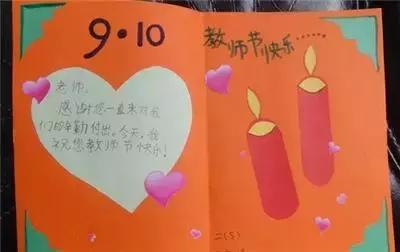 9·10
老师,
感谢您一直来对我
们的辛勤付出。今天,我
祝您教师节快乐!
教师节快乐……
二(5)